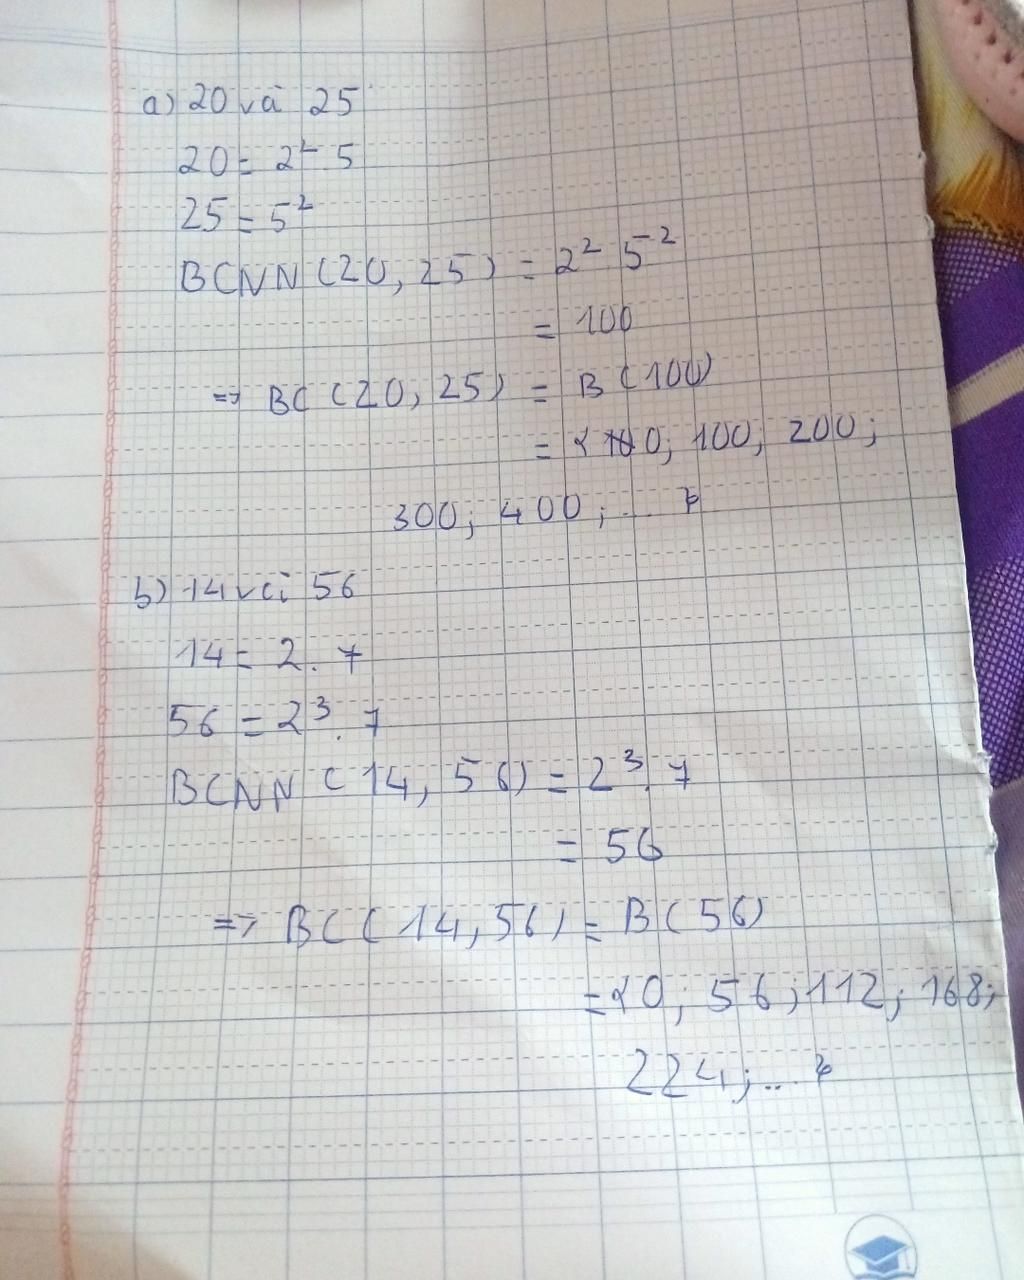 a) 20 và 25
20 = 2² 5
25 = 5²
BCNN (20, 25) = 2² 5²
= 100
=> BC (20, 25) = B (100)
= { 0; 100; 200;
300; 400; ... }
b) 14 và 56
14 = 2. 7
56 = 2³. 7
BCNN (14, 56) = 2³. 7
= 56
=> BC (14, 56) = B (56)
= {0; 56; 112; 168;
224; ... }